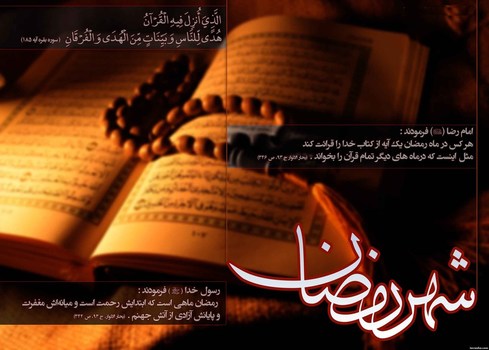 الَّذِيَ أُنزِلَ فِيهِ الْقُرْآنُ
هُدًى لِلنَّاسِ وَ بَيِّنَاتٍ مِّنَ الْهُدَى وَ الْفُرْقَانِ (سوره بقره آیه ۱۸۵)
امام رضا فرمودند :
هر کس در ماه رمضان یک آیه از کتاب خدا را قرائت کند
مثل اینست که درماه های دیگر تمام قرآن را بخواند . (بحار الانوار، ج ۹۳، ص ۳۴۶)
شهر رمضان
رسول خدا فرمودند :
رمضان ماهی است که ابتدایش رحمت است و میانه‌اش مغفرت
و پایانش آزادی از آتش جهنم . (بحار الانوار، ج ۹۳، ص ۳۴۲)